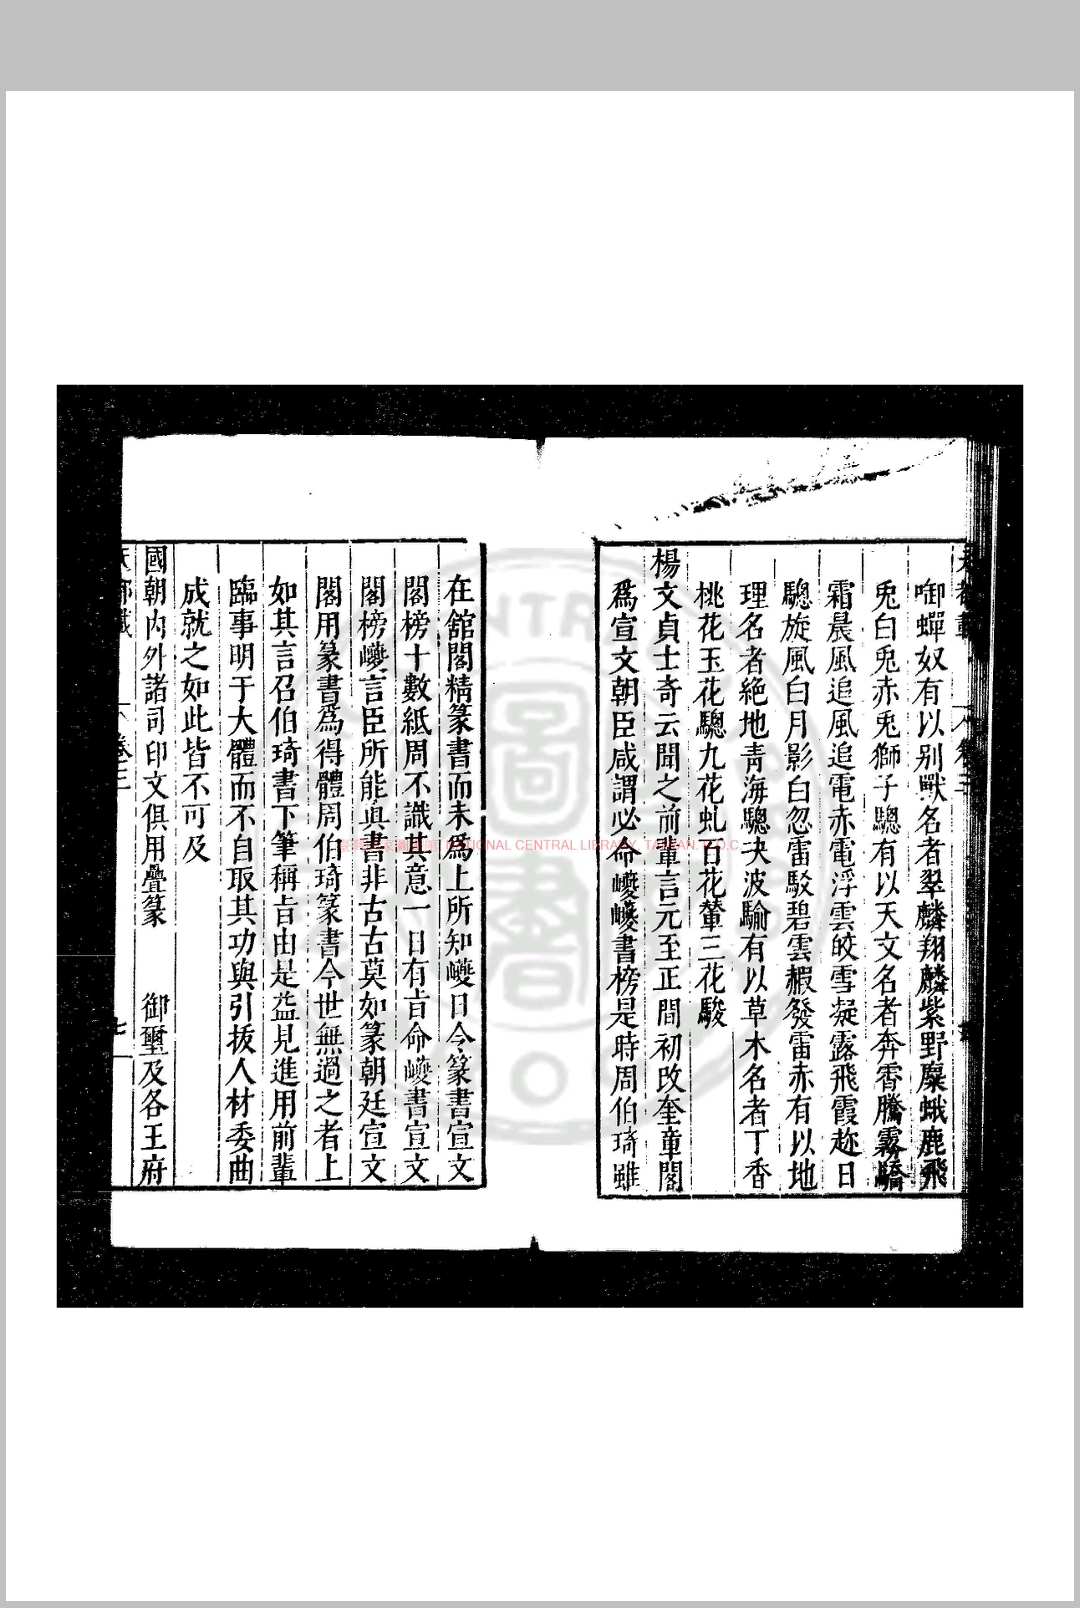 啣蟬奴有以别獸名者翠麟翔麟紫野麋蛾鹿飛
兎白兎赤兎獅子驄有以天文名者奔霄騰霧驕
霜晨風追風追電赤電浮雲皎雪凝露飛霞趂日
驄旋風白月影白忽雷駁碧雲騢發雷赤有以地
理名者絶地青海驄决波騟有以草木名者丁香
桃花玉花驄九花虬百花輦三花駿
楊文貞士奇云聞之前輩言元至正間初改奎章閣
爲宣文朝臣咸謂必命巙巙書榜是時周伯琦雖
在舘閣精篆書而未爲上所知巙日令篆書宣文
閣榜十數紙周不識其意一日有㫖命巙書宣文
閣榜巙言臣所能眞書非古古莫如篆朝廷宣文
閣用篆書爲得體周伯琦篆書今世無過之者上
如其言召伯琦書下筆稱㫖由是益見進用前輩
臨事明于大體而不自取其功與引拔人材委曲
成就之如此皆不可及
國朝内外諸司印文俱用疊篆 御璽及各王府
卷三
七
NATIONAL CENTRAL LIBRARY, TAIWAN, R.O.C.